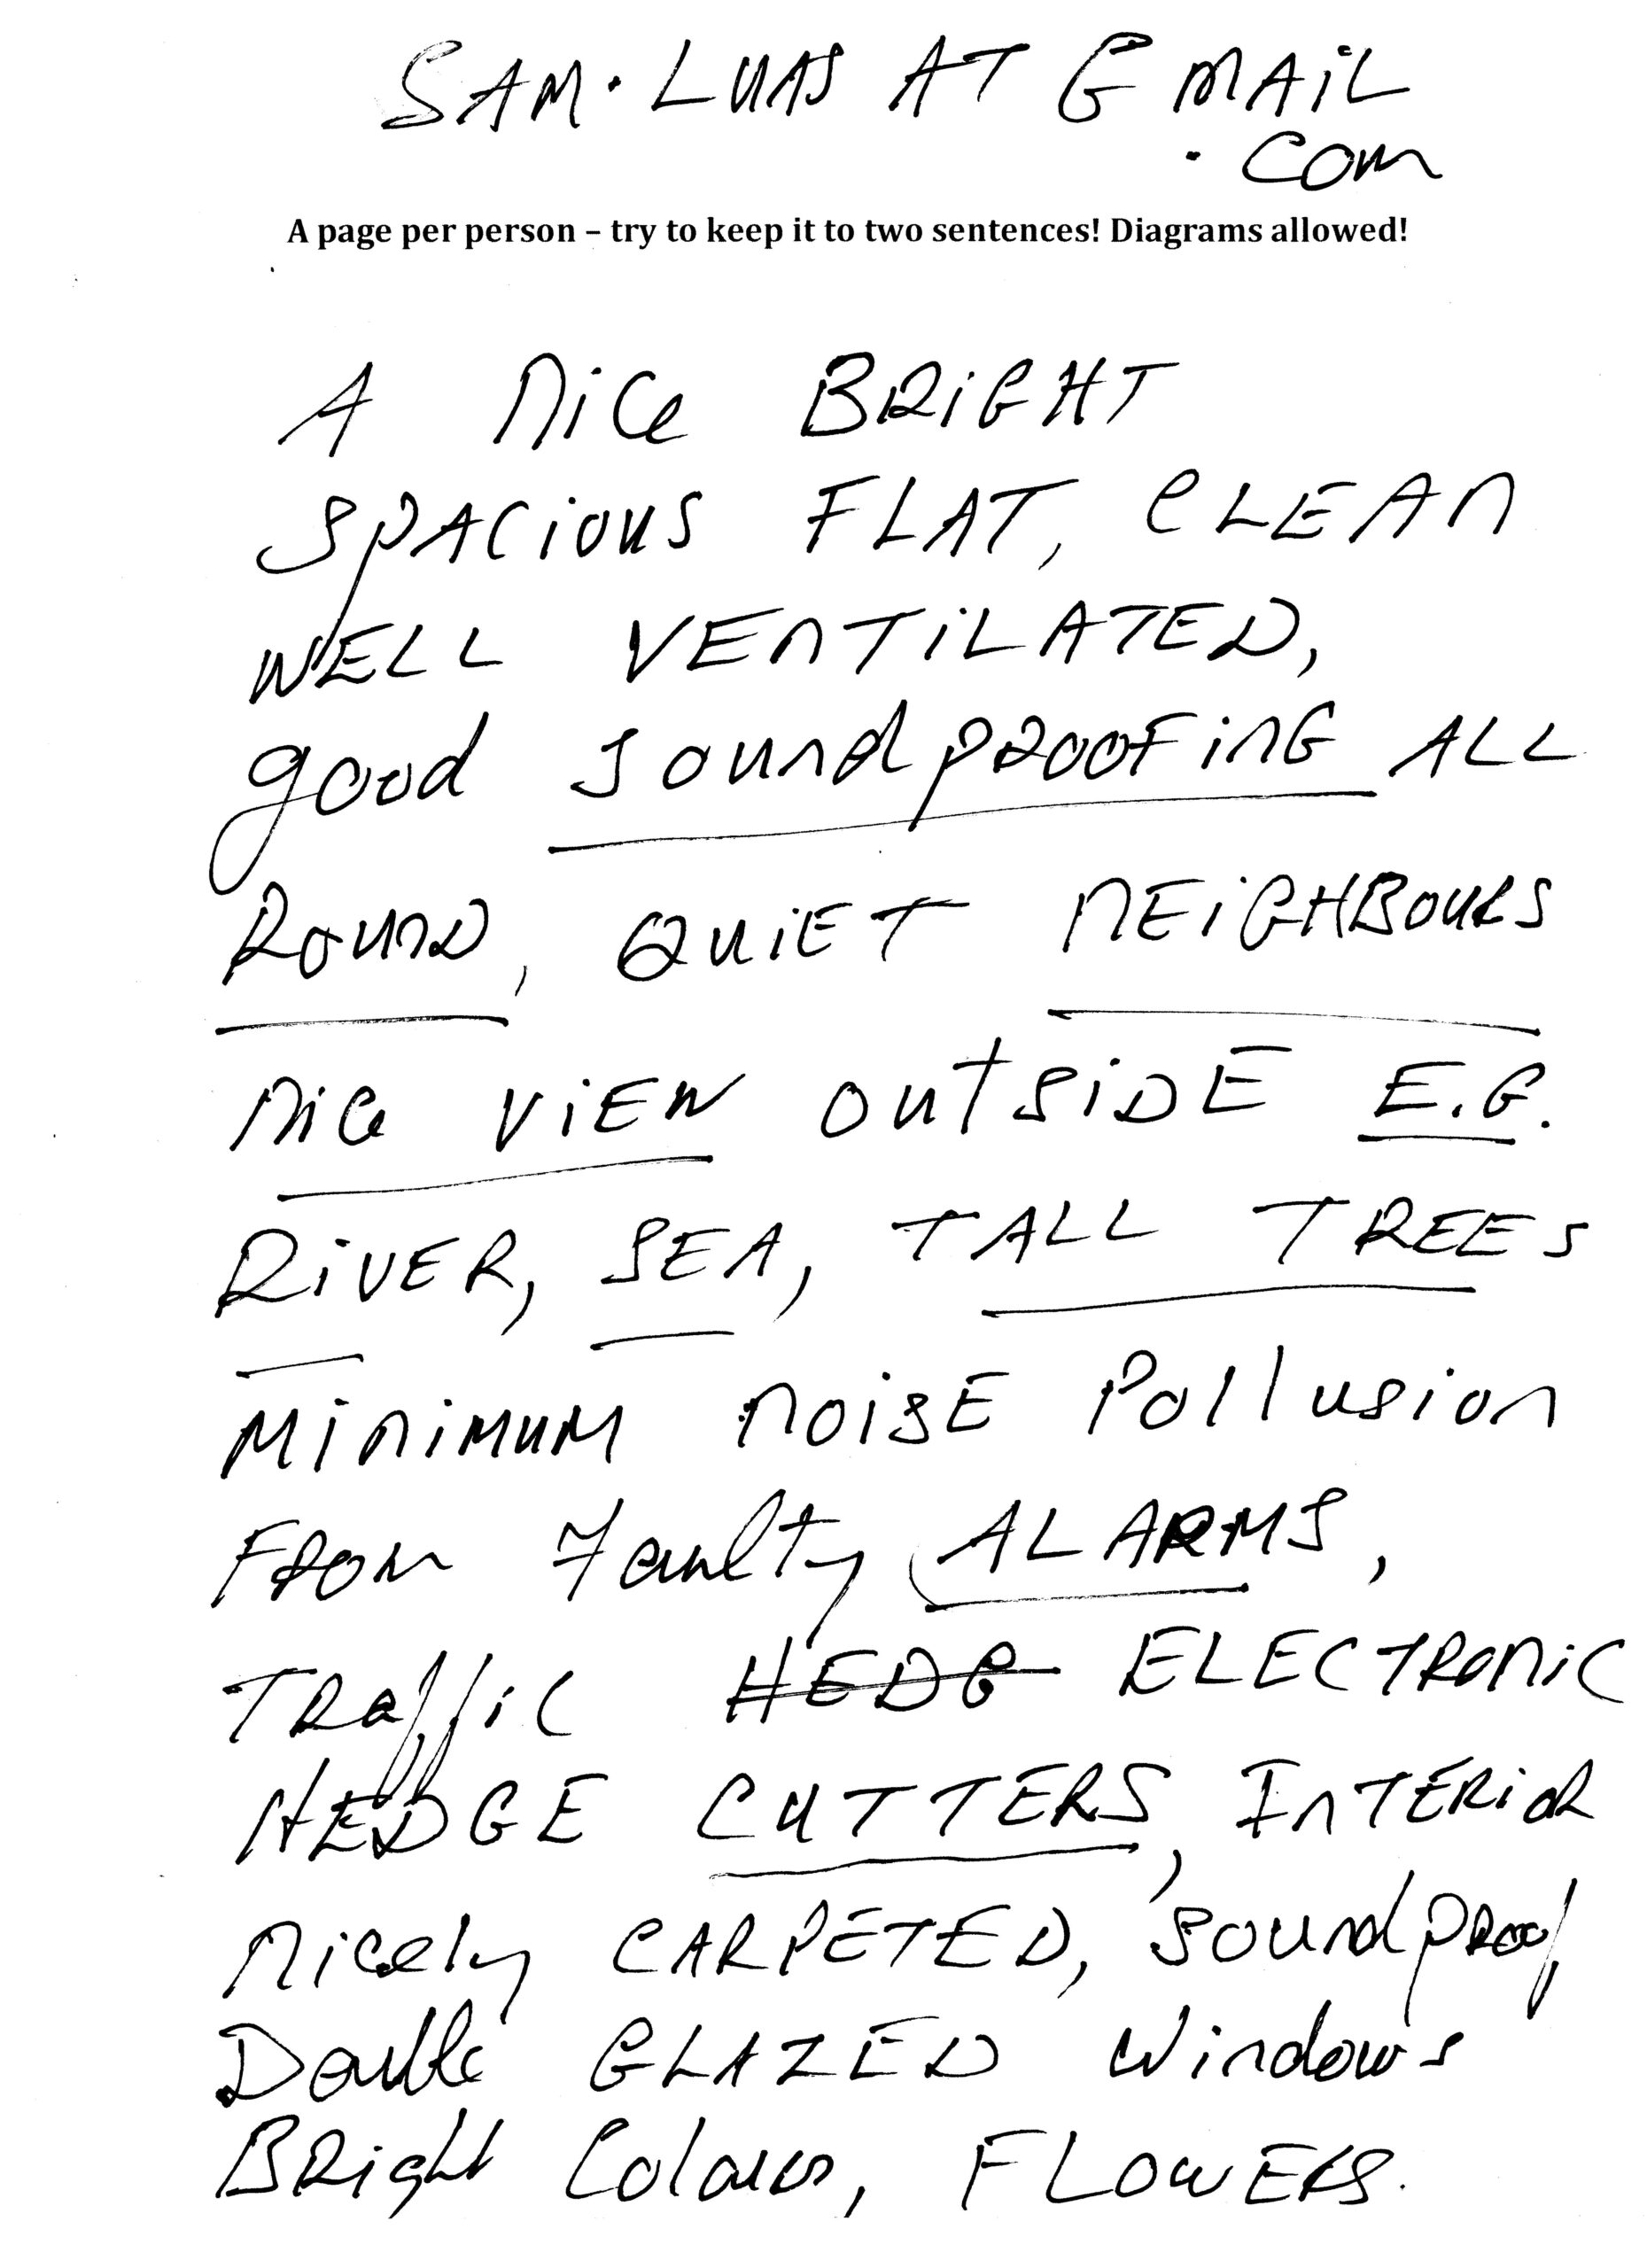 SAM. LUAS AT GMAIL
.com
A page per person – try to keep it to two sentences! Diagrams allowed!
A NiCe BRiGHT
SPACiOUS FLAT, CLEAN
WELL VENTiLATED,
good soundpROOFiNG ALL
ROUND, QUiET NEiGHBOURS
NiCe ViEW OUtSiDE E.G.
RiVER, SEA, TALL TREES
MiNiMUM NOiSE Pollusion
FROM Faulty ALARMS,
TRaffiC HEDG ELECTRONiC
HEDGE CUTTERS, INTERiOR
Nicely CARPETED, soundpRoof
Double GLAZED Windows
BRight Colours, FLOWERS.